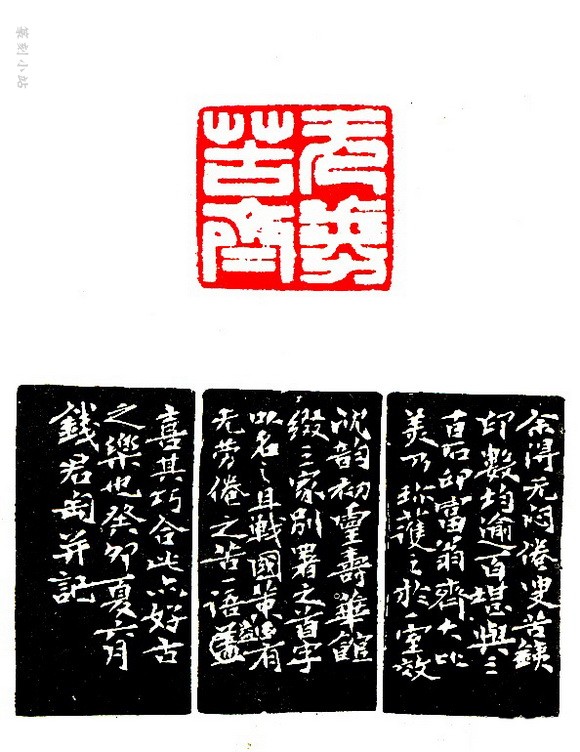 篆刻小站
无劵
苦齋
余得无闷倦叟苦鐵
印數均逾百堪與三
百石印富翁齊大比
美乃珎護之於一室效
沈韵初靈壽華館
綴三家別署之首字
以名之且戰國策有
无勞倦之苦一語蓋
喜其巧合此亦好古
之樂也癸卯夏六月
錢君匋并記